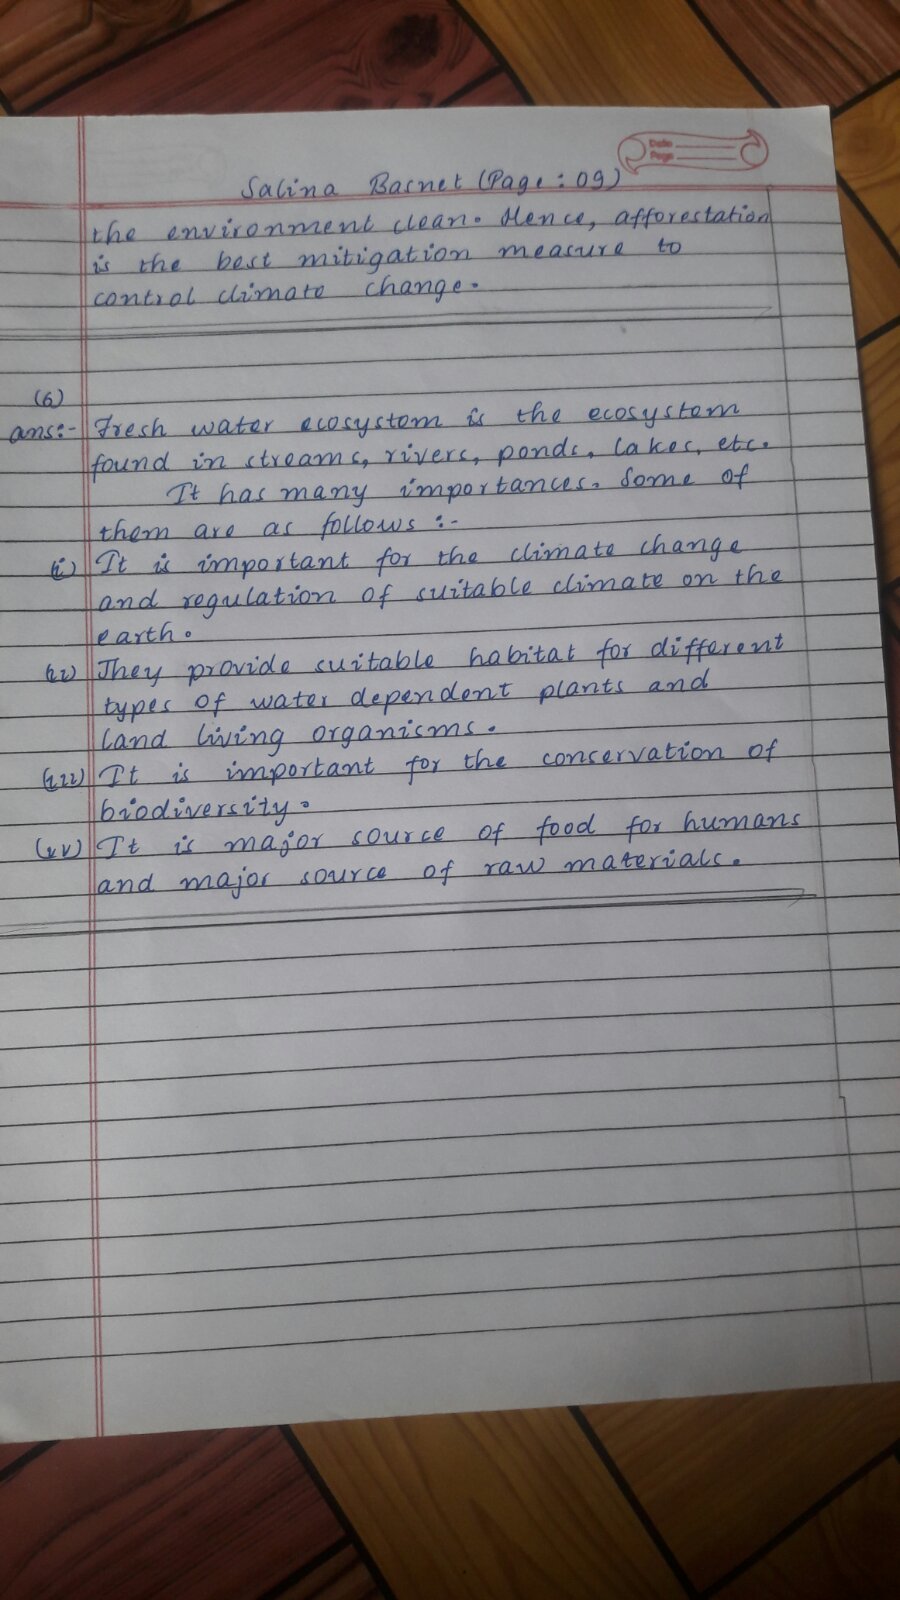 Date
Page
Salina Basnet (Page : 09)
the environment clean. Hence, afforestation
is the best mitigation measure to
control climate change.
(6)
ans:- Fresh water ecosystem is the ecosystem
found in streams, rivers, ponds, lakes, etc.
It has many importances. Some of
them are as follows :-
(i) It is important for the climate change
and regulation of suitable climate on the
earth.
(ii) They provide suitable habitat for different
types of water dependent plants and
land living organisms.
(iii) It is important for the conservation of
biodiversity.
(iv) It is major source of food for humans
and major source of raw materials.